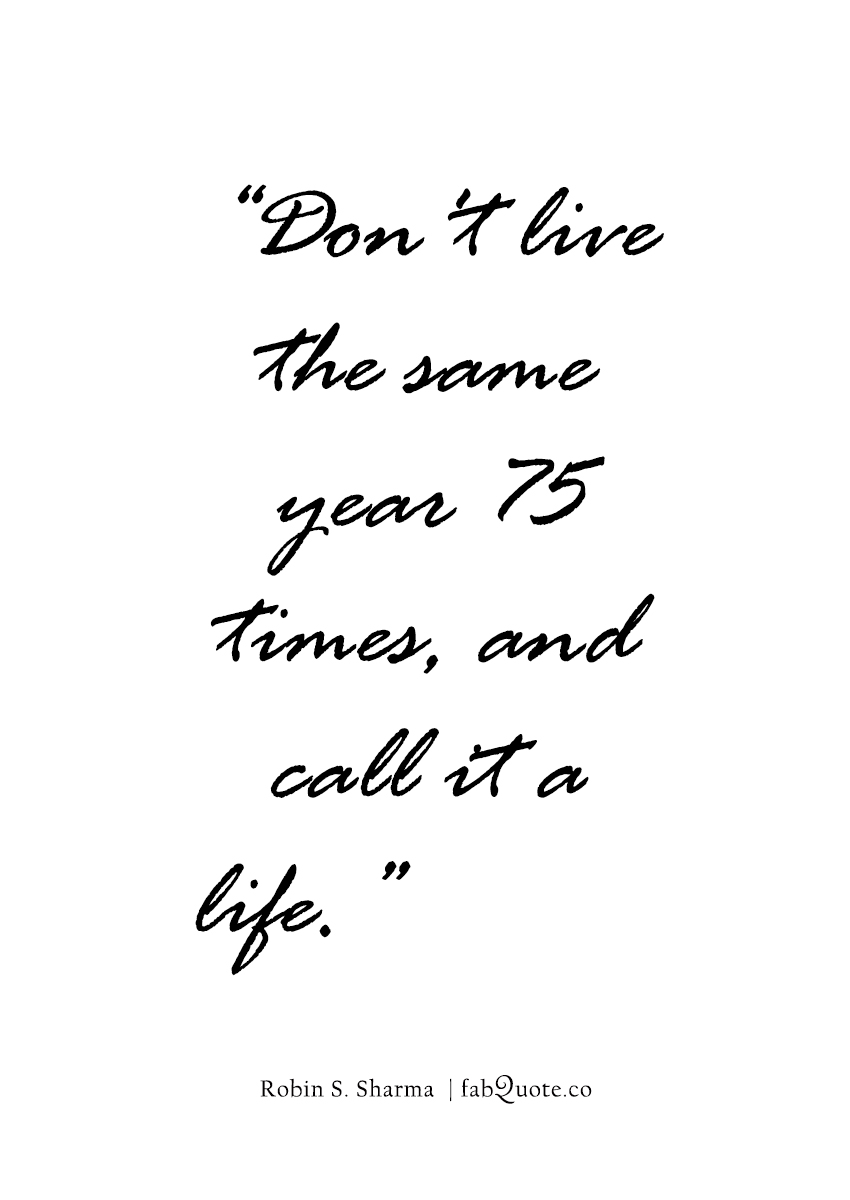 “Don't live
the same
year 75
times, and
call it a
life.”
Robin S. Sharma | fabQuote.co